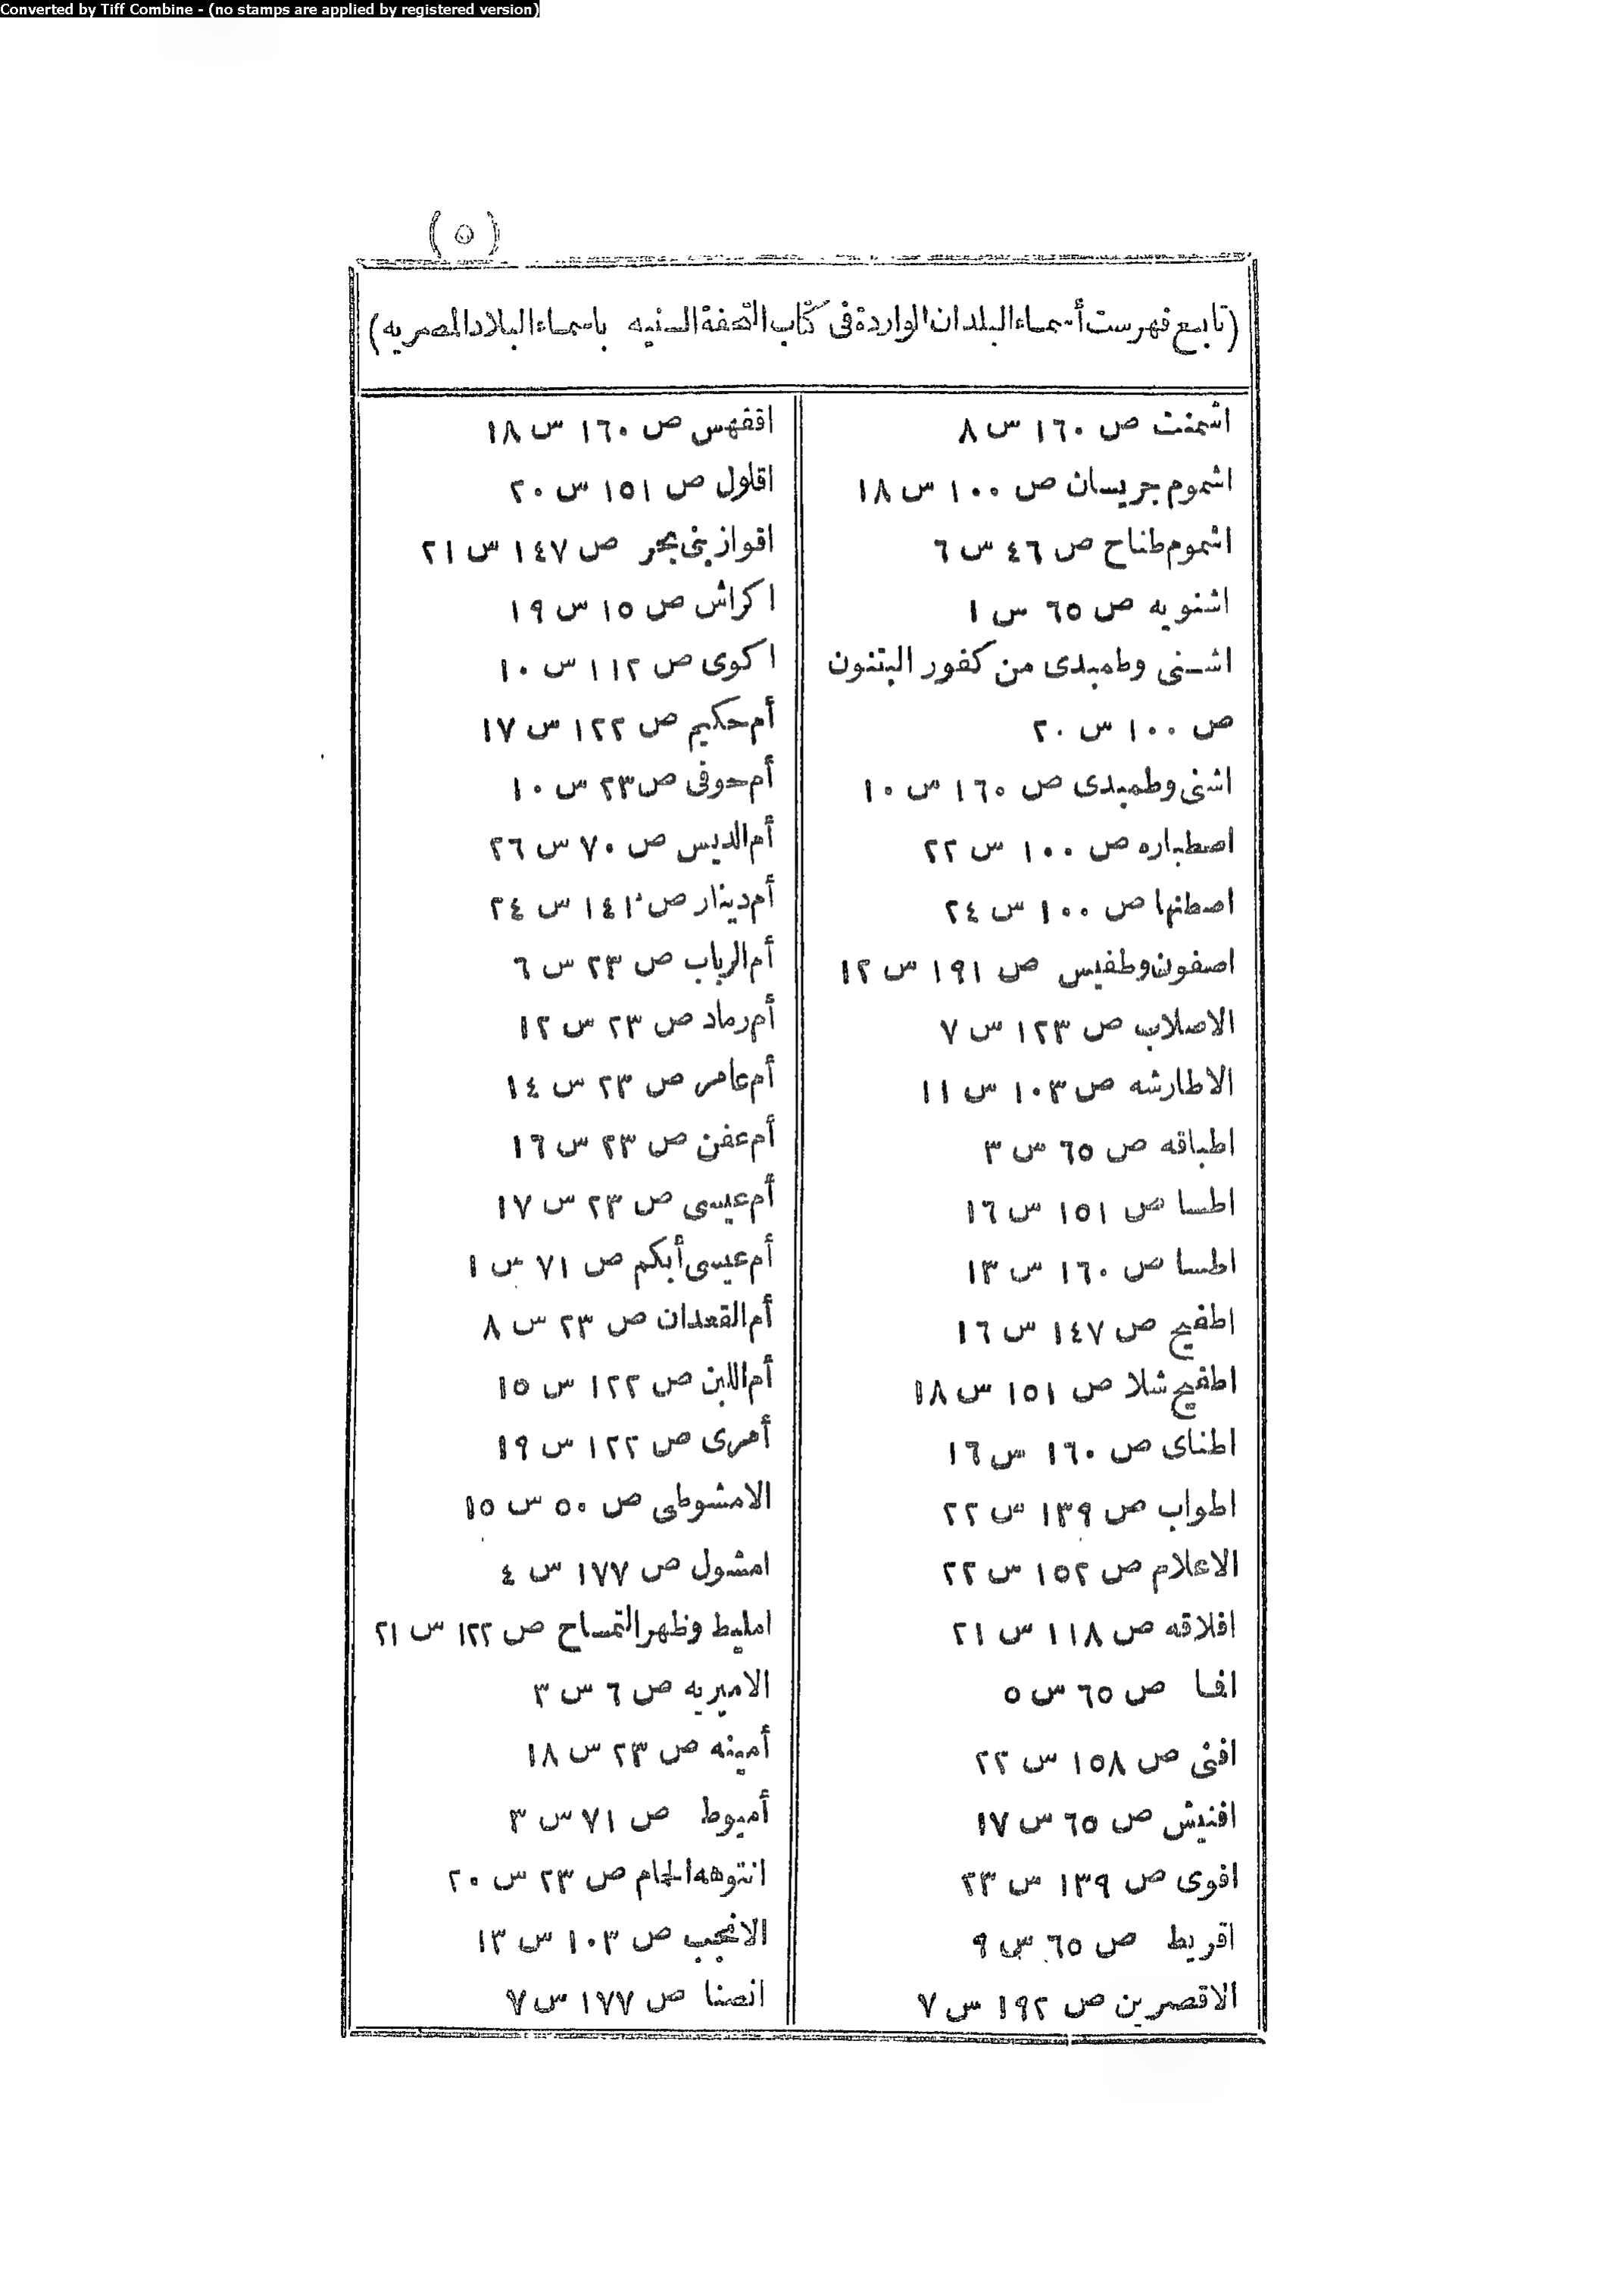 Converted by Tiff Combine - (no stamps are applied by registered version)
(٥)
(تابع فهرست أسماء البلدان الواردة فى كتاب التحفة السنيه باسماء البلاد المصريه)
اشمنت ص ١٦٠ س ٨
اشموم جريسان ص ١٠٠ س ١٨
اشموم طناح ص ٤٦ س ٦
اشنويه ص ٦٥ س ١
اشنى وطمبدى من كفور البتنون
ص ١٠٠ س ٢٠
اشنى وطمبدى ص ١٦٠ س ١٠
اصطباره ص ١٠٠ س ٢٢
اصطنها ص ١٠٠ س ٢٤
اصفون وطفيس ص ١٩١ س ١٢
الاصلاب ص ١٢٣ س ٧
الاطارشه ص ١٠٣ س ١١
اطباقه ص ٦٥ س ٣
اطسا ص ١٥١ س ١٦
اطسا ص ١٦٠ س ١٣
اطفيح ص ١٤٧ س ١٦
اطفيح شلا ص ١٥١ س ١٨
اطناى ص ١٦٠ س ١٦
اطواب ص ١٣٩ س ٢٢
الاعلام ص ١٥٢ س ٢٢
افلاقه ص ١١٨ س ٢١
ص ٦٥ س ٥
افنى ص ١٥٨ س ٢٢
افنيش ص ٦٥ س ١٧
افوى ص ١٣٩ س ٢٣
اقريط ص ٦٥ س ٩
الاقصرين ص ١٩٢ س ٧
اقفهس ص ١٦٠ س ١٨
اقلول ص ١٥١ س ٢٠
اقواز بنى بحر ص ١٤٧ س ٢١
اكراش ص ١٥ س ١٩
اكوى ص ١١٢ س ١٠
أم حكيم ص ١٢٢ س ١٧
أم حوفى ص ٢٣ س ١٠
أم الديس ص ٧٠ س ٢٦
أم دينار ص ١٤١ س ٢٤
أم الرباب ص ٢٣ س ٦
أم رماد ص ٢٣ س ١٢
أم عامر ص ٢٣ س ١٤
أم عفن ص ٢٣ س ١٦
أم عيسى ص ٢٣ س ١٧
أم عيسى أبكم ص ٧١ س ١
أم القعدان ص ٢٣ س ٨
أم اللبن ص ١٢٢ س ١٥
أمرى ص ١٢٢ س ١٩
الامشوطى ص ٥٠ س ١٥
امشول ص ١٧٧ س ٤
امليط وظهر التمساح ص ١٢٢ س ٢١
الاميريه ص ٦ س ٣
أمينه ص ٢٣ س ١٨
أميوط ص ٧١ س ٣
انتوهه الحام ص ٢٣ س ٢٠
الانجب ص ١٠٣ س ١٣
انصنا ص ١٧٧ س ٧